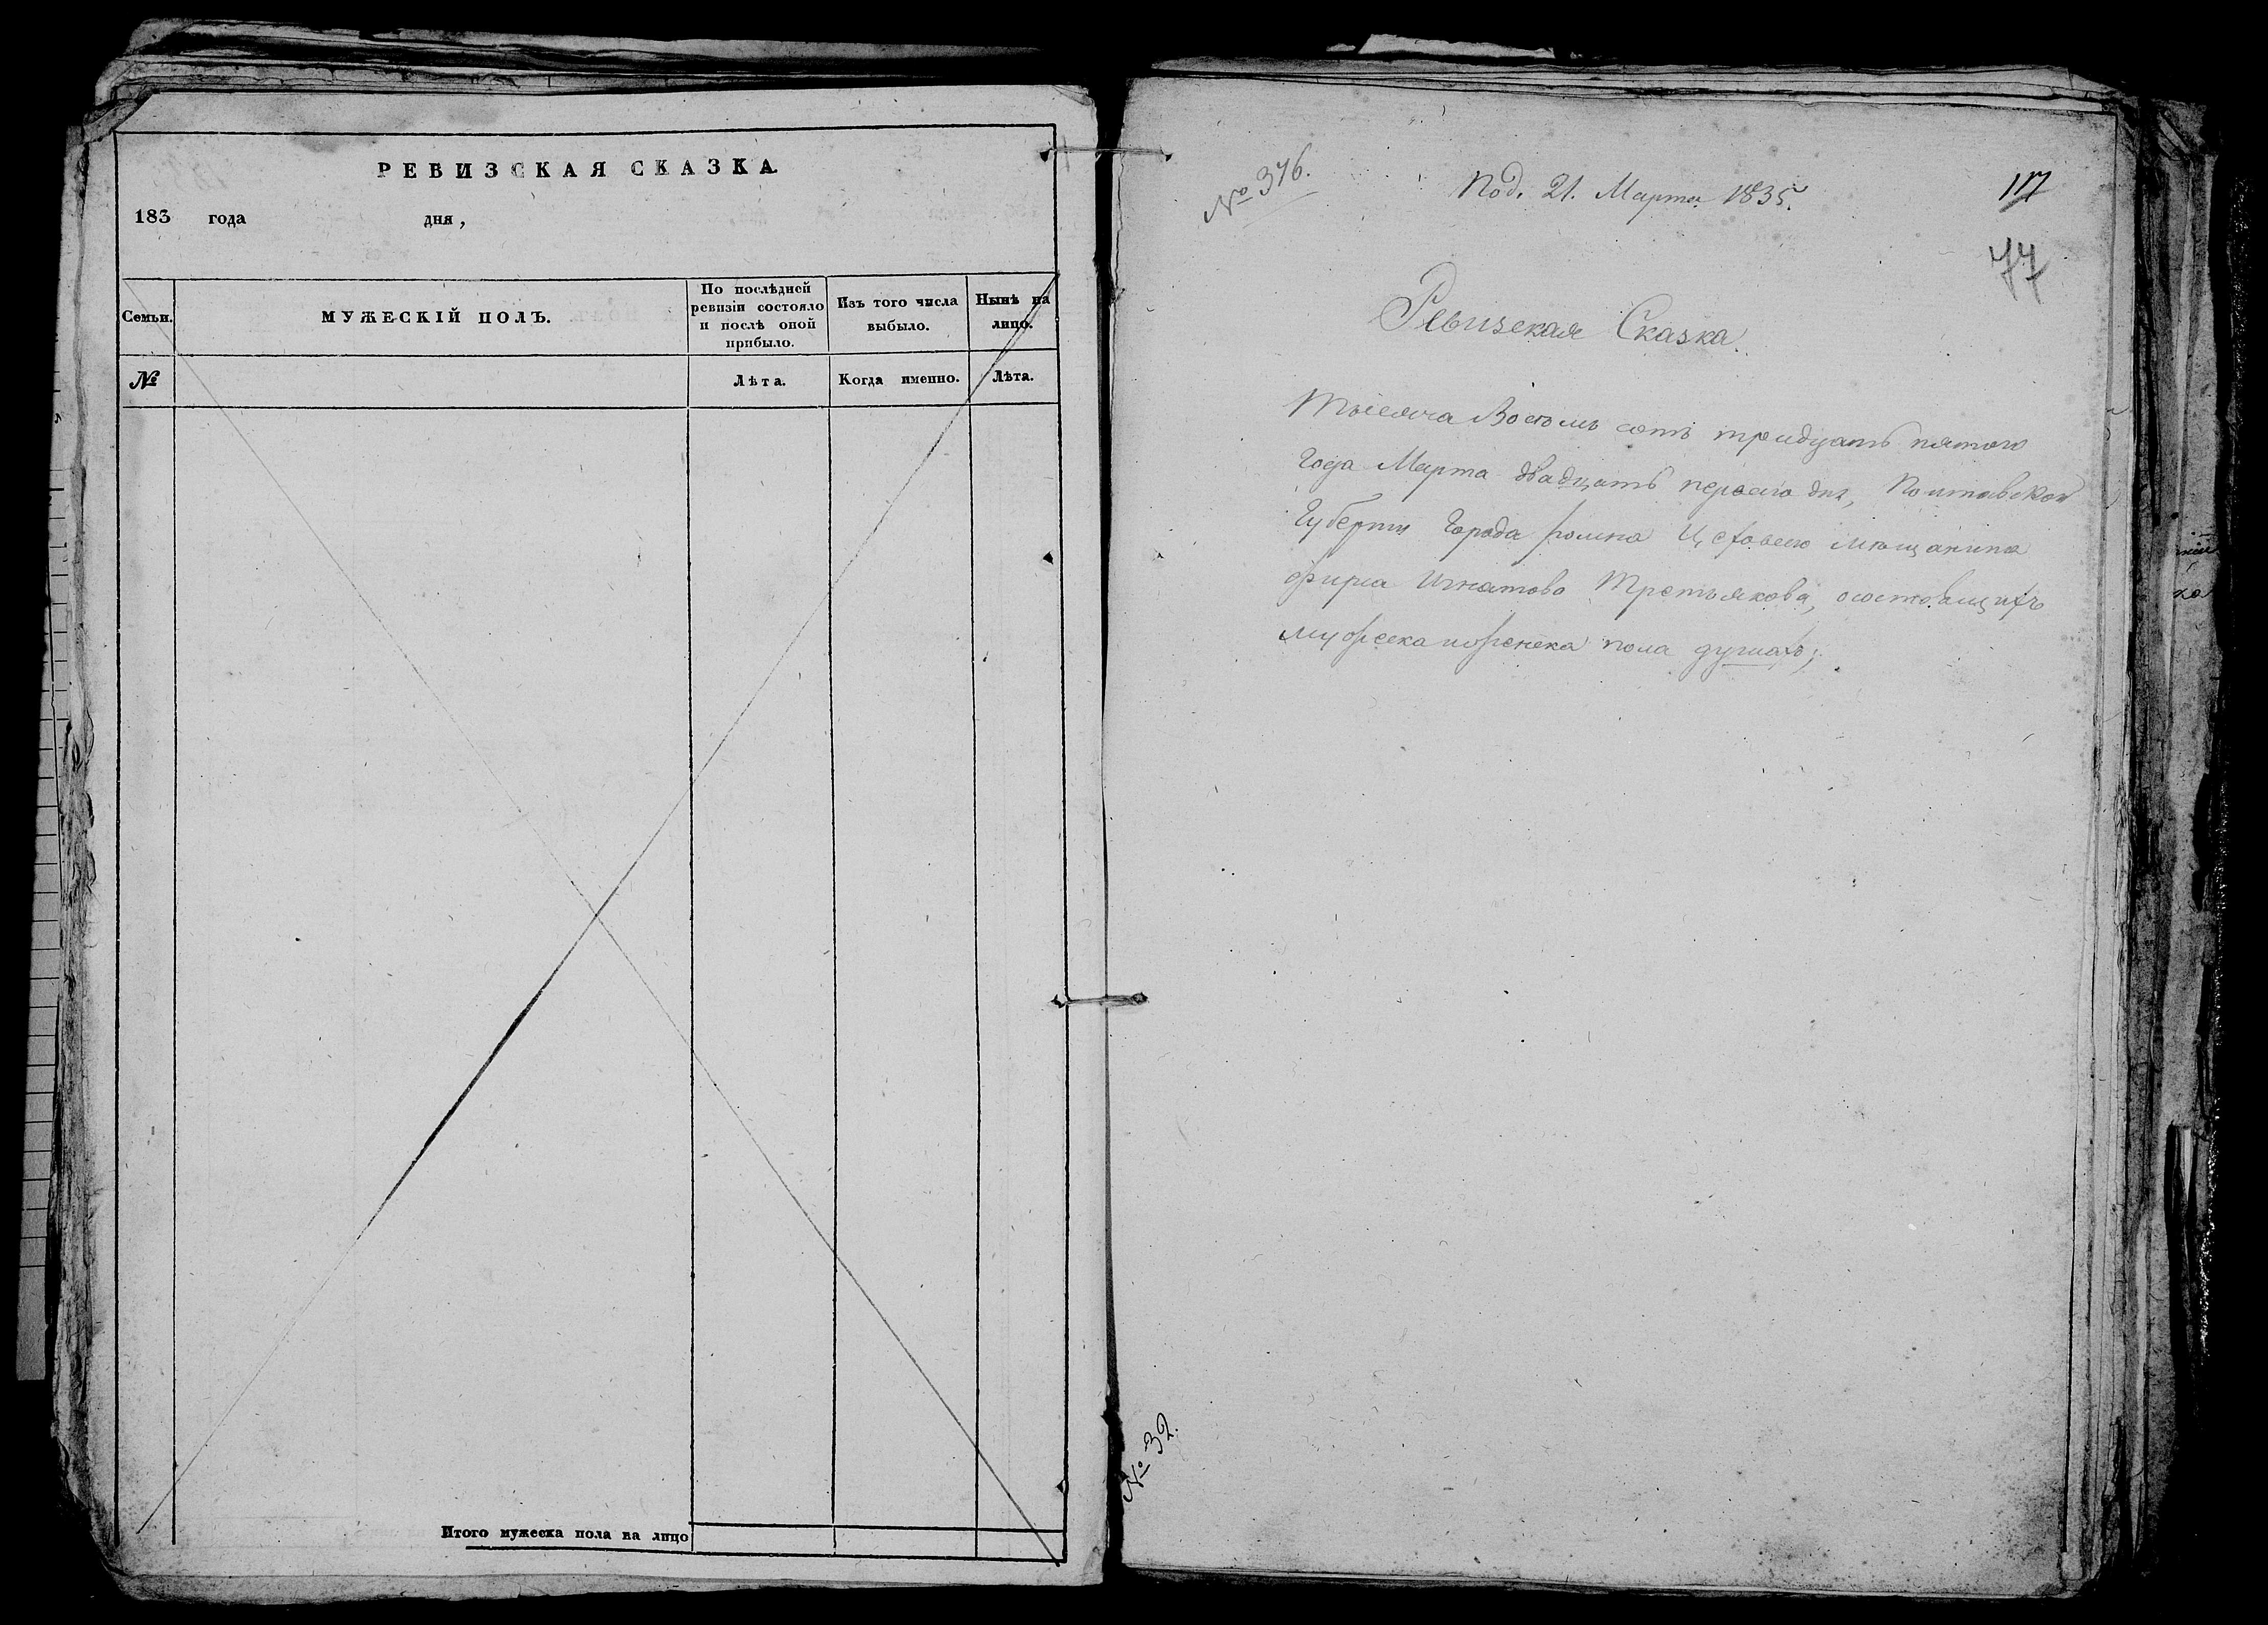 РЕВИЗСКАЯ СКАЗКА
183 года дня,
Семьи.
МУЖЕСКІЙ ПОЛЪ.
По послѣдней
ревизіи состояло
и послѣ оной
прибыло.
Изъ того числа
выбыло.
Нынѣ на
лицо.
№
Лѣта.
Когда именно.
Лѣта.
Итого мужеска пола на лицо
№ 376.
Под. 21. Марта 1835.
117
77
Ревизская Сказка.
Тысяча Восемь сотъ тридцать пятого
Года Марта двадцать первого дня, Полтавской
Губерніи Города Ромна Цеховаго мѣщанина
Фирса Игнатова Третьякова, осостоящихъ
мужеска иженска пола душахъ;
№ 32.